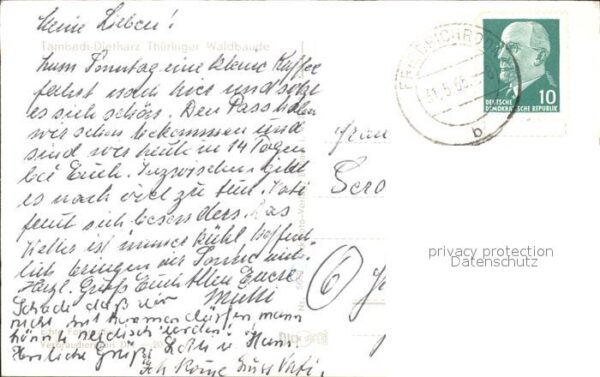 Meine Lieben!
Tambach-Dietharz Thüringer Waldbaude
Zum Sonntag eine kleine Kaffee
fahrt nach hier und
es sich schön. Den Pass haben
wir schon bekommen und
sind wir heute in 14 Tagen
bei Euch. Inzwischen gibt
es noch viel zu tun. Vati
freut sich besonders. Das
Wetter ist immer kühl hoffent
lich bringen wir Sonne mit.
Herzl. Grüße Euch Allen Eure
Mutti
Schade daß wir
nicht mitkommen dürfen man
könnte neidisch werden!
Herzliche Grüße Lotti u. Hans.
Ich komme Vati.
Frau
6
FRIEDRICHRODA
31.5.65
b
DEUTSCHE
DEMOKRATISCHE REPUBLIK
10
privacy protection
Datenschutz